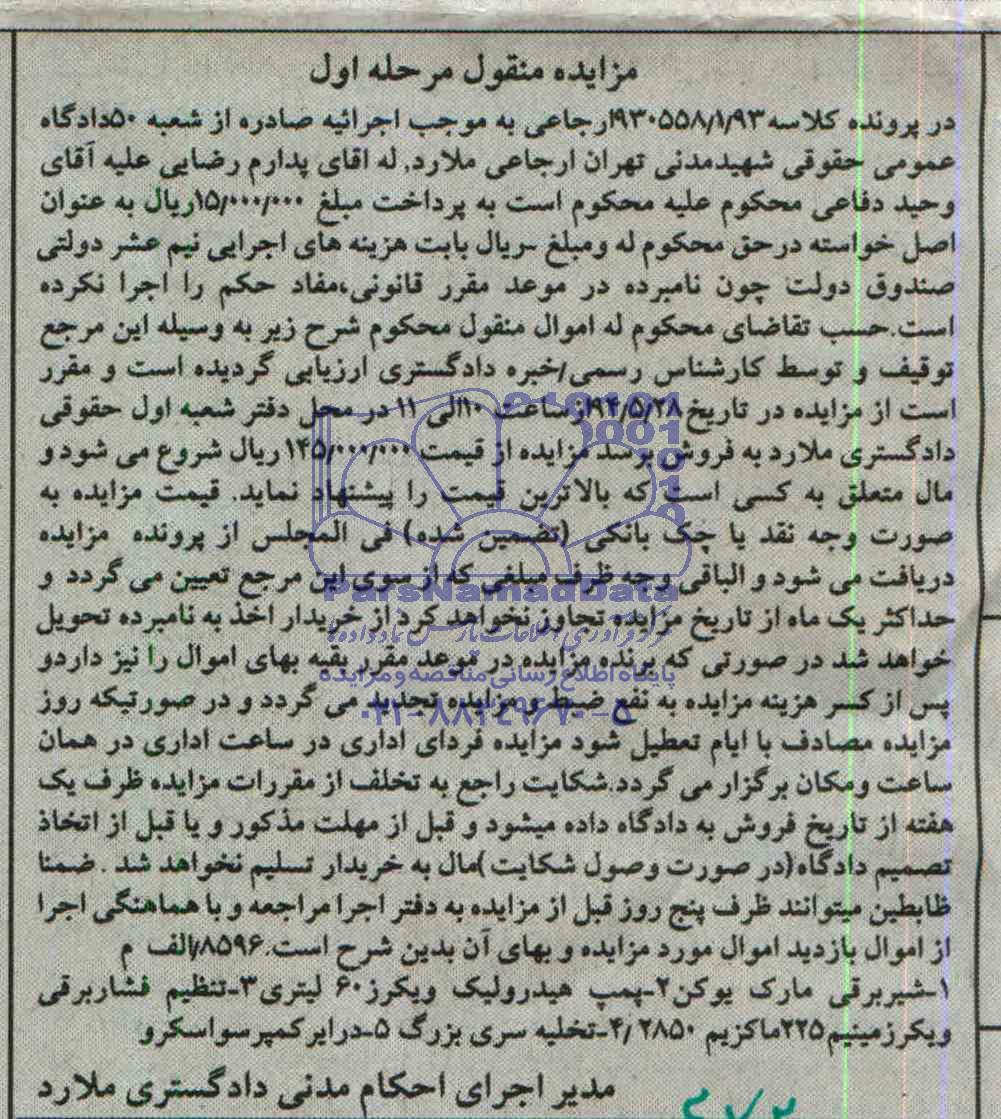 مزایده منقول مرحله اول
در پرونده کلاسه ۹۳۰۵۵۸/۱/۹۳ارجاعی به موجب اجرائیه صادره از شعبه ۵۰دادگاه
عمومی حقوقی شهیدمدنی تهران ارجاعی ملارد, له اقای پدارم رضایی علیه آقای
وحید دفاعی محکوم علیه محکوم است به پرداخت مبلغ ۱۵/۰۰۰/۰۰۰ریال به عنوان
اصل خواسته درحق محکوم له ومبلغ -ریال بابت هزینه های اجرایی نیم عشر دولتی
صندوق دولت چون نامبرده در موعد مقرر قانونی،مفاد حکم را اجرا نکرده
است.حسب تقاضای محکوم له اموال منقول محکوم شرح زیر به وسیله این مرجع
توقیف و توسط کارشناس رسمی/خبره دادگستری ارزیابی گردیده است و مقرر
است از مزایده در تاریخ ۹۴/۵/۲۸ازساعت ۱۰الی ۱۱ در محل دفتر شعبه اول حقوقی
دادگستری ملارد به فروش برسد مزایده از قیمت ۱۴۵/۰۰۰/۰۰۰ ریال شروع می شود و
مال متعلق به کسی است که بالاترین قیمت را پیشنهاد نماید. قیمت مزایده به
صورت وجه نقد یا چک بانکی (تضمین شده) فی المجلس از پرونده مزایده
دریافت می شود و الباقی وجه ظرف مبلغی که از سوی این مرجع تعیین می گردد و
حداکثر یک ماه از تاریخ مزایده تجاوز نخواهد کرد از خریدار اخذ به نامبرده تحویل
خواهد شد در صورتی که برنده مزایده در موعد مقرر بقیه بهای اموال را نیز داردو
پس از کسر هزینه مزایده به نفع ضبط و مزایده تجدید می گردد و در صورتیکه روز
مزایده مصادف با ایام تعطیل شود مزایده فردای اداری در ساعت اداری در همان
ساعت ومکان برگزار می گردد.شکایت راجع به تخلف از مقررات مزایده ظرف یک
هفته از تاریخ فروش به دادگاه داده میشود و قبل از مهلت مذکور و یا قبل از اتخاذ
تصمیم دادگاه(در صورت وصول شکایت )مال به خریدار تسلیم نخواهد شد . ضمنا
ظابطین میتوانند ظرف پنج روز قبل از مزایده به دفتر اجرا مراجعه و با هماهنگی اجرا
از اموال بازدید اموال مورد مزایده و بهای آن بدین شرح است.۸۵۹۶/الف م
۱-شیربرقی مارک یوکن۲-پمپ هیدرولیک ویکرز۶۰ لیتری۳-تنظیم فشاربرقی
ویکرزمینیم۲۲۵ماکزیم ۲۸۵۰ /۴-تخلیه سری بزرگ ۵-درایرکمپرسواسکرو
مدیر اجرای احکام مدنی دادگستری ملارد
ParsNamadData
پایگاه اطلاع رسانی مناقصه و مزایده
۰۲۱-۸۸۳۴۹۶۷۰-۵